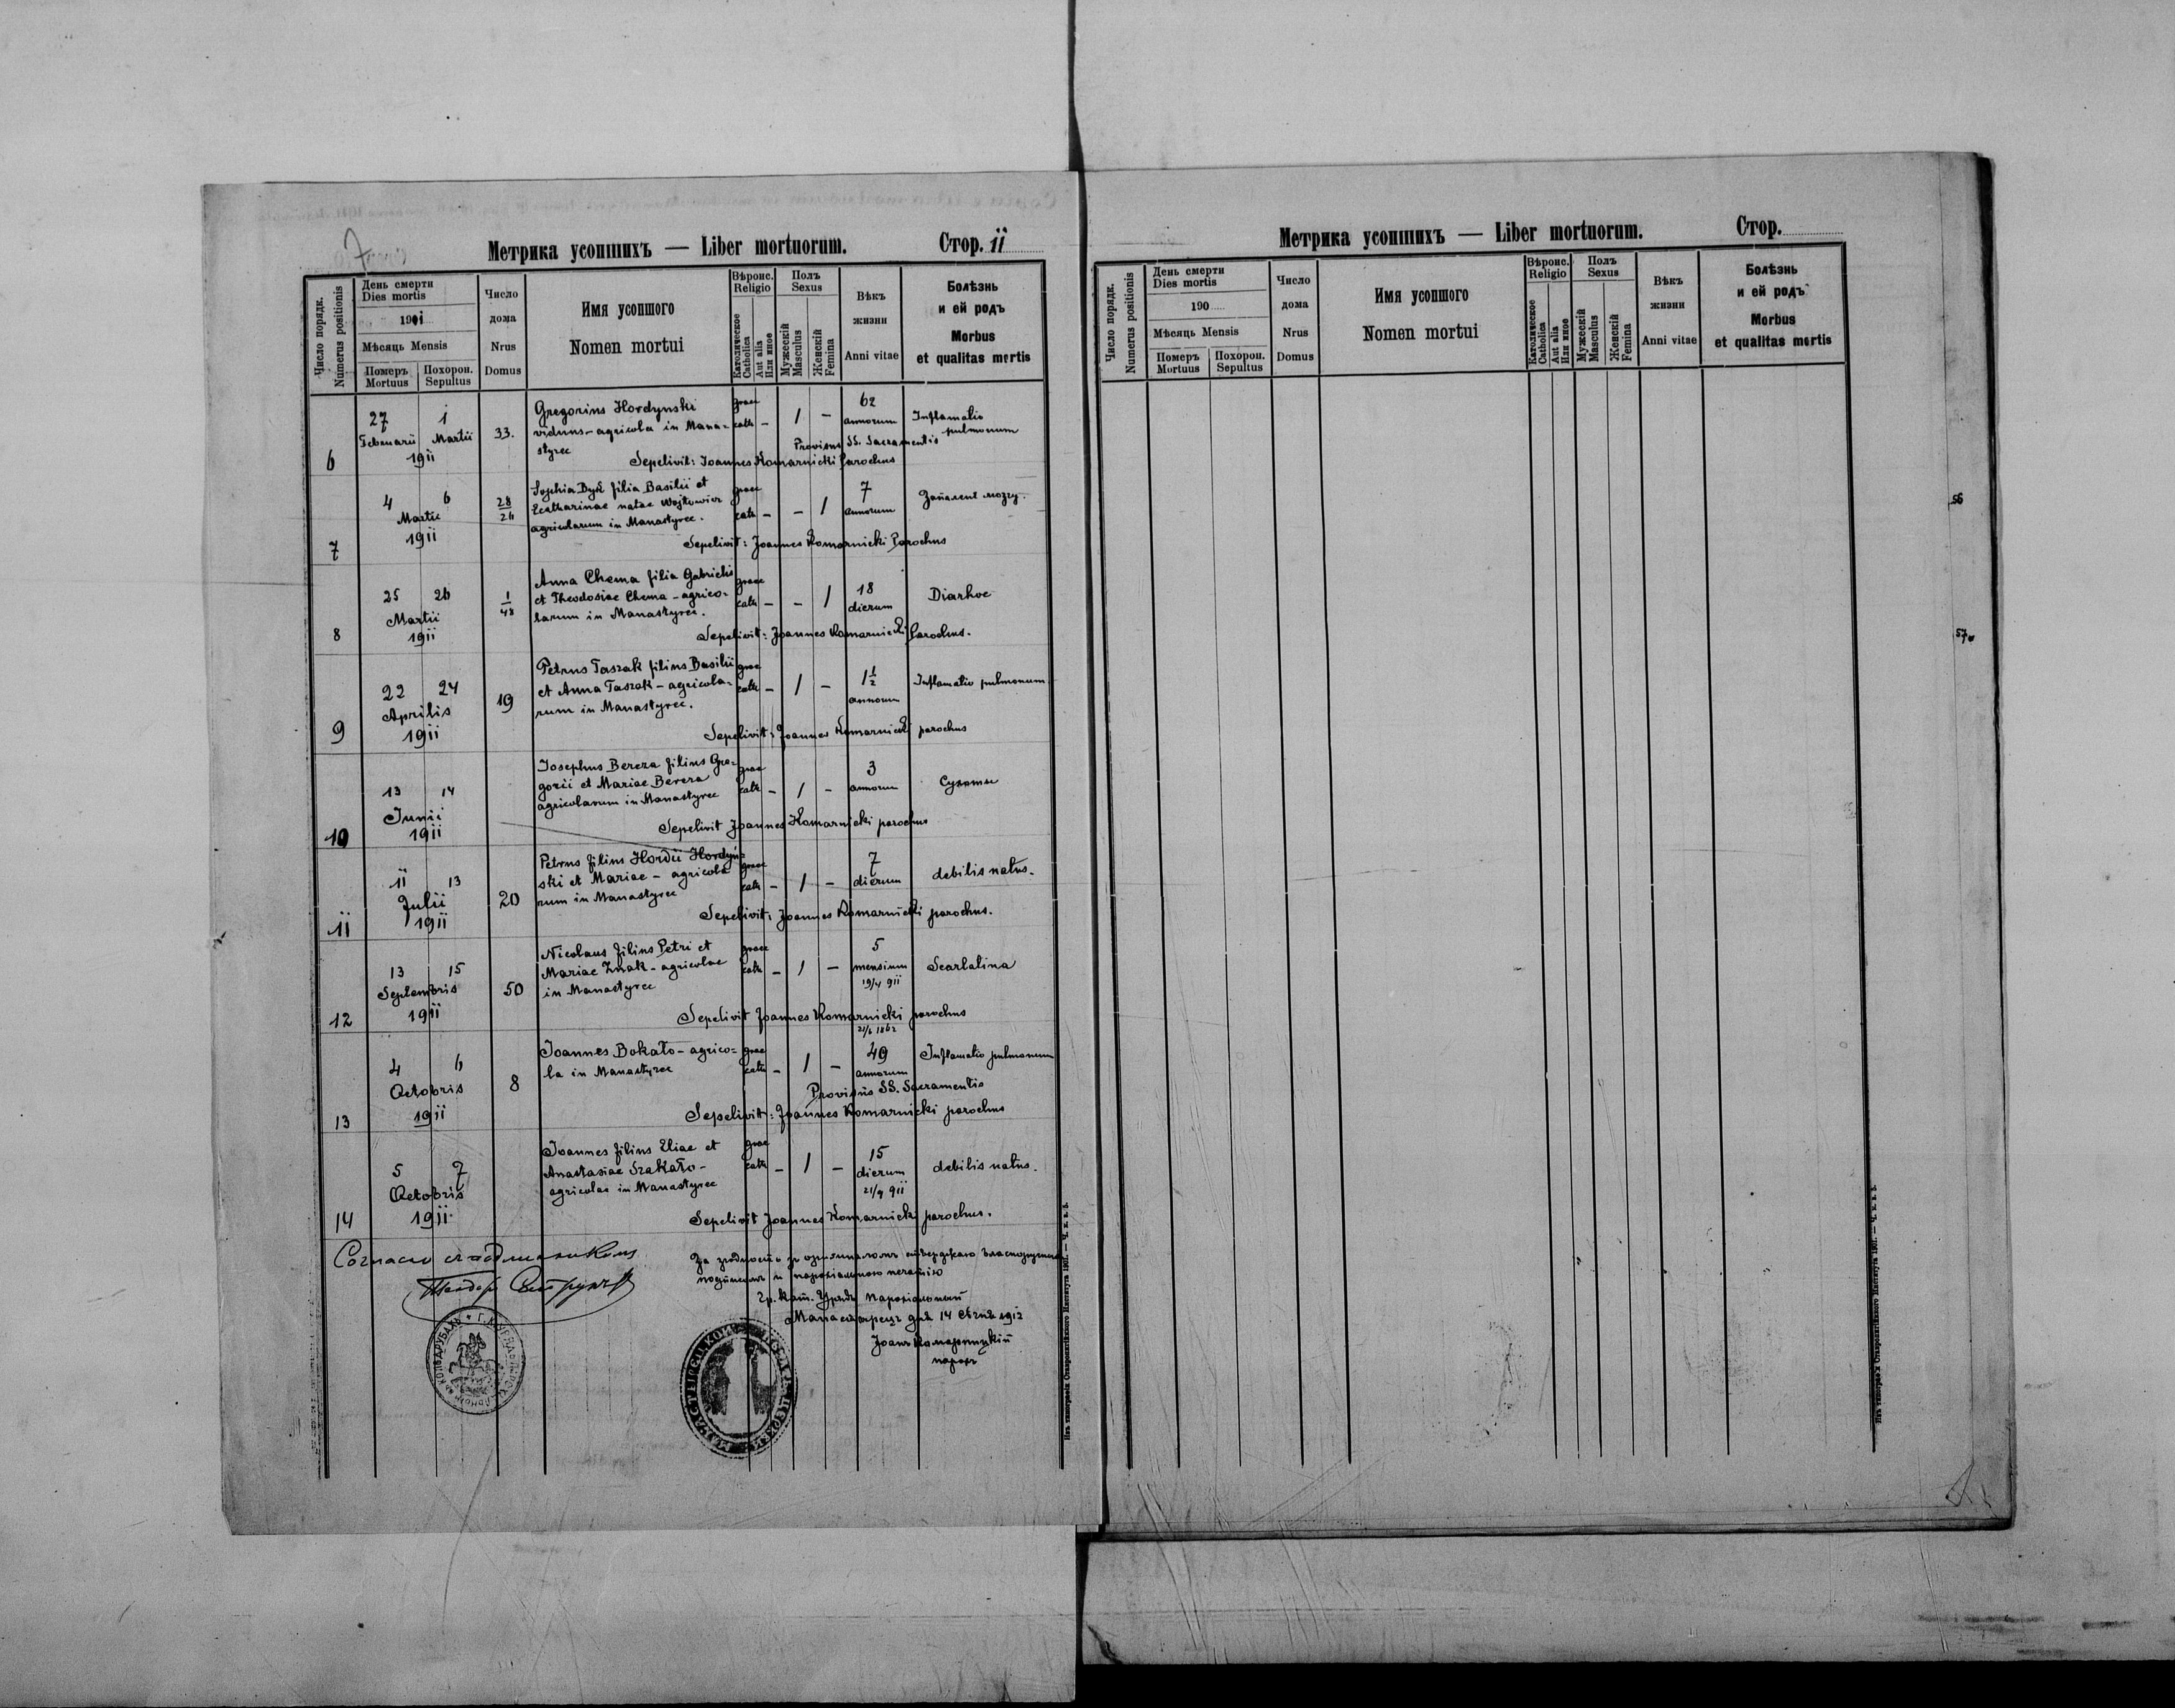 7
Метрика усопшихъ — Liber mortuorum.
Стор. 11
Число порядк.
Numerus positionis
День смерти
Dies mortis
1911
Мѣсяць Mensis
Померъ
Mortuus
Похорон.
Sepultus
Число
дома
Nrus
Domus
Имя усопшого
Nomen mortui
Вѣроис.
Religio
Католическое
Catholica
Aut alia
Или иное
Полъ
Sexus
Мужескій
Masculus
Женскій
Femina
Вѣкъ
жизни
Anni vitae
Болѣзнь
и ей родъ
Morbus
et qualitas mortis
6
27 1
Februarii Martii
1911
33.
Gregorius Hordynski
viduus - agricola in Mana=
styrec
graec
cath
-
1
-
62
annorum
Inflamatio
pulmonum
Provisus SS. Sacramentis
Sepelivit: Joannes Komarnicki Parochus
7
4 6
Martii
1911
28
26
Sophia Dyk filia Basilii et
Ecatharinae natae Wojtowicz
agricolarum in Manastyrec.
graec
cath
-
-
1
7
annorum
Запаленє мозгу.
Sepelivit: Joannes Komarnicki Parochus
8
25 26
Martii
1911
1
48
Anna Chema filia Gabrielis
et Theodosiae Chema - agrico=
larum in Manastyrec.
graec
cath
-
-
1
18
dierum
Diarhoe
Sepelivit: Joannes Komarnicki Parochus.
9
22 24
Aprilis
1911
19
Petrus Taszak filius Basilii
et Anna Taszak - agricola=
rum in Manastyrec.
graec
cath
-
1
-
1½
annorum
Inflamatio pulmonum.
Sepelivit: Joannes Komarnicki parochus
10
13 14
Junii
1911
Josephus Bereza filius Gre=
gorii et Mariae Bereza
agricolarum in Manastyrec
graec
cath
-
1
-
3
annorum
Сухоты
Sepelivit Joannes Komarnicki parochus
11
11 13
Julii
1911
20
Petrus filius Hordii Hordyn=
ski et Mariae - agricola
rum in Manastyrec
graec
cath
-
1
-
7
dierum
debilis natus.
Sepelivit: Joannes Komarnicki parochus.
12
13 15
Septembris
1911
50
Nicolaus filius Petri et
Mariae Znak - agricolae
in Manastyrec
graec
cath
-
1
-
5
mensium
19/4 911
Scarlatina
Sepelivit Joannes Komarnicki parochus
13
4 6
Octobris
1911
8
Joannes Bokało - agrico=
la in Manastyrec
graec
cath
-
1
-
21/6 1862
49
annorum
Inflamatio pulmonum
Provisus SS. Sacramentis
Sepelivit: Joannes Komarnicki parochus
14
5 7
Octobris
1911
Joannes filius Eliae et
Anastasiae Szakało -
agricolae in Manastyrec
graec
cath
-
1
-
15
dierum
21/9 911
debilis natus.
Sepelivit Joannes Komarnicki parochus.
За згодность зъ оригиналомъ
подписомъ и парохіяльною печатію
Гр. кат. Урядъ парохіяльный
Манастирець дня 14 Сѣчня 1912
Іоанъ Комарницкій
парохъ
Изъ типографіи Ставропигійского Института 1901.
Метрика усопшихъ — Liber mortuorum.
Стор.
Число порядк.
Numerus positionis
День смерти
Dies mortis
190
Мѣсяць Mensis
Померъ
Mortuus
Похорон.
Sepultus
Число
дома
Nrus
Domus
Имя усопшого
Nomen mortui
Вѣроис.
Religio
Католическое
Catholica
Aut alia
Или иное
Полъ
Sexus
Мужескій
Masculus
Женскій
Femina
Вѣкъ
жизни
Anni vitae
Болѣзнь
и ей родъ
Morbus
et qualitas mortis
Изъ типографіи Ставропигійского Института 1901.
56
57